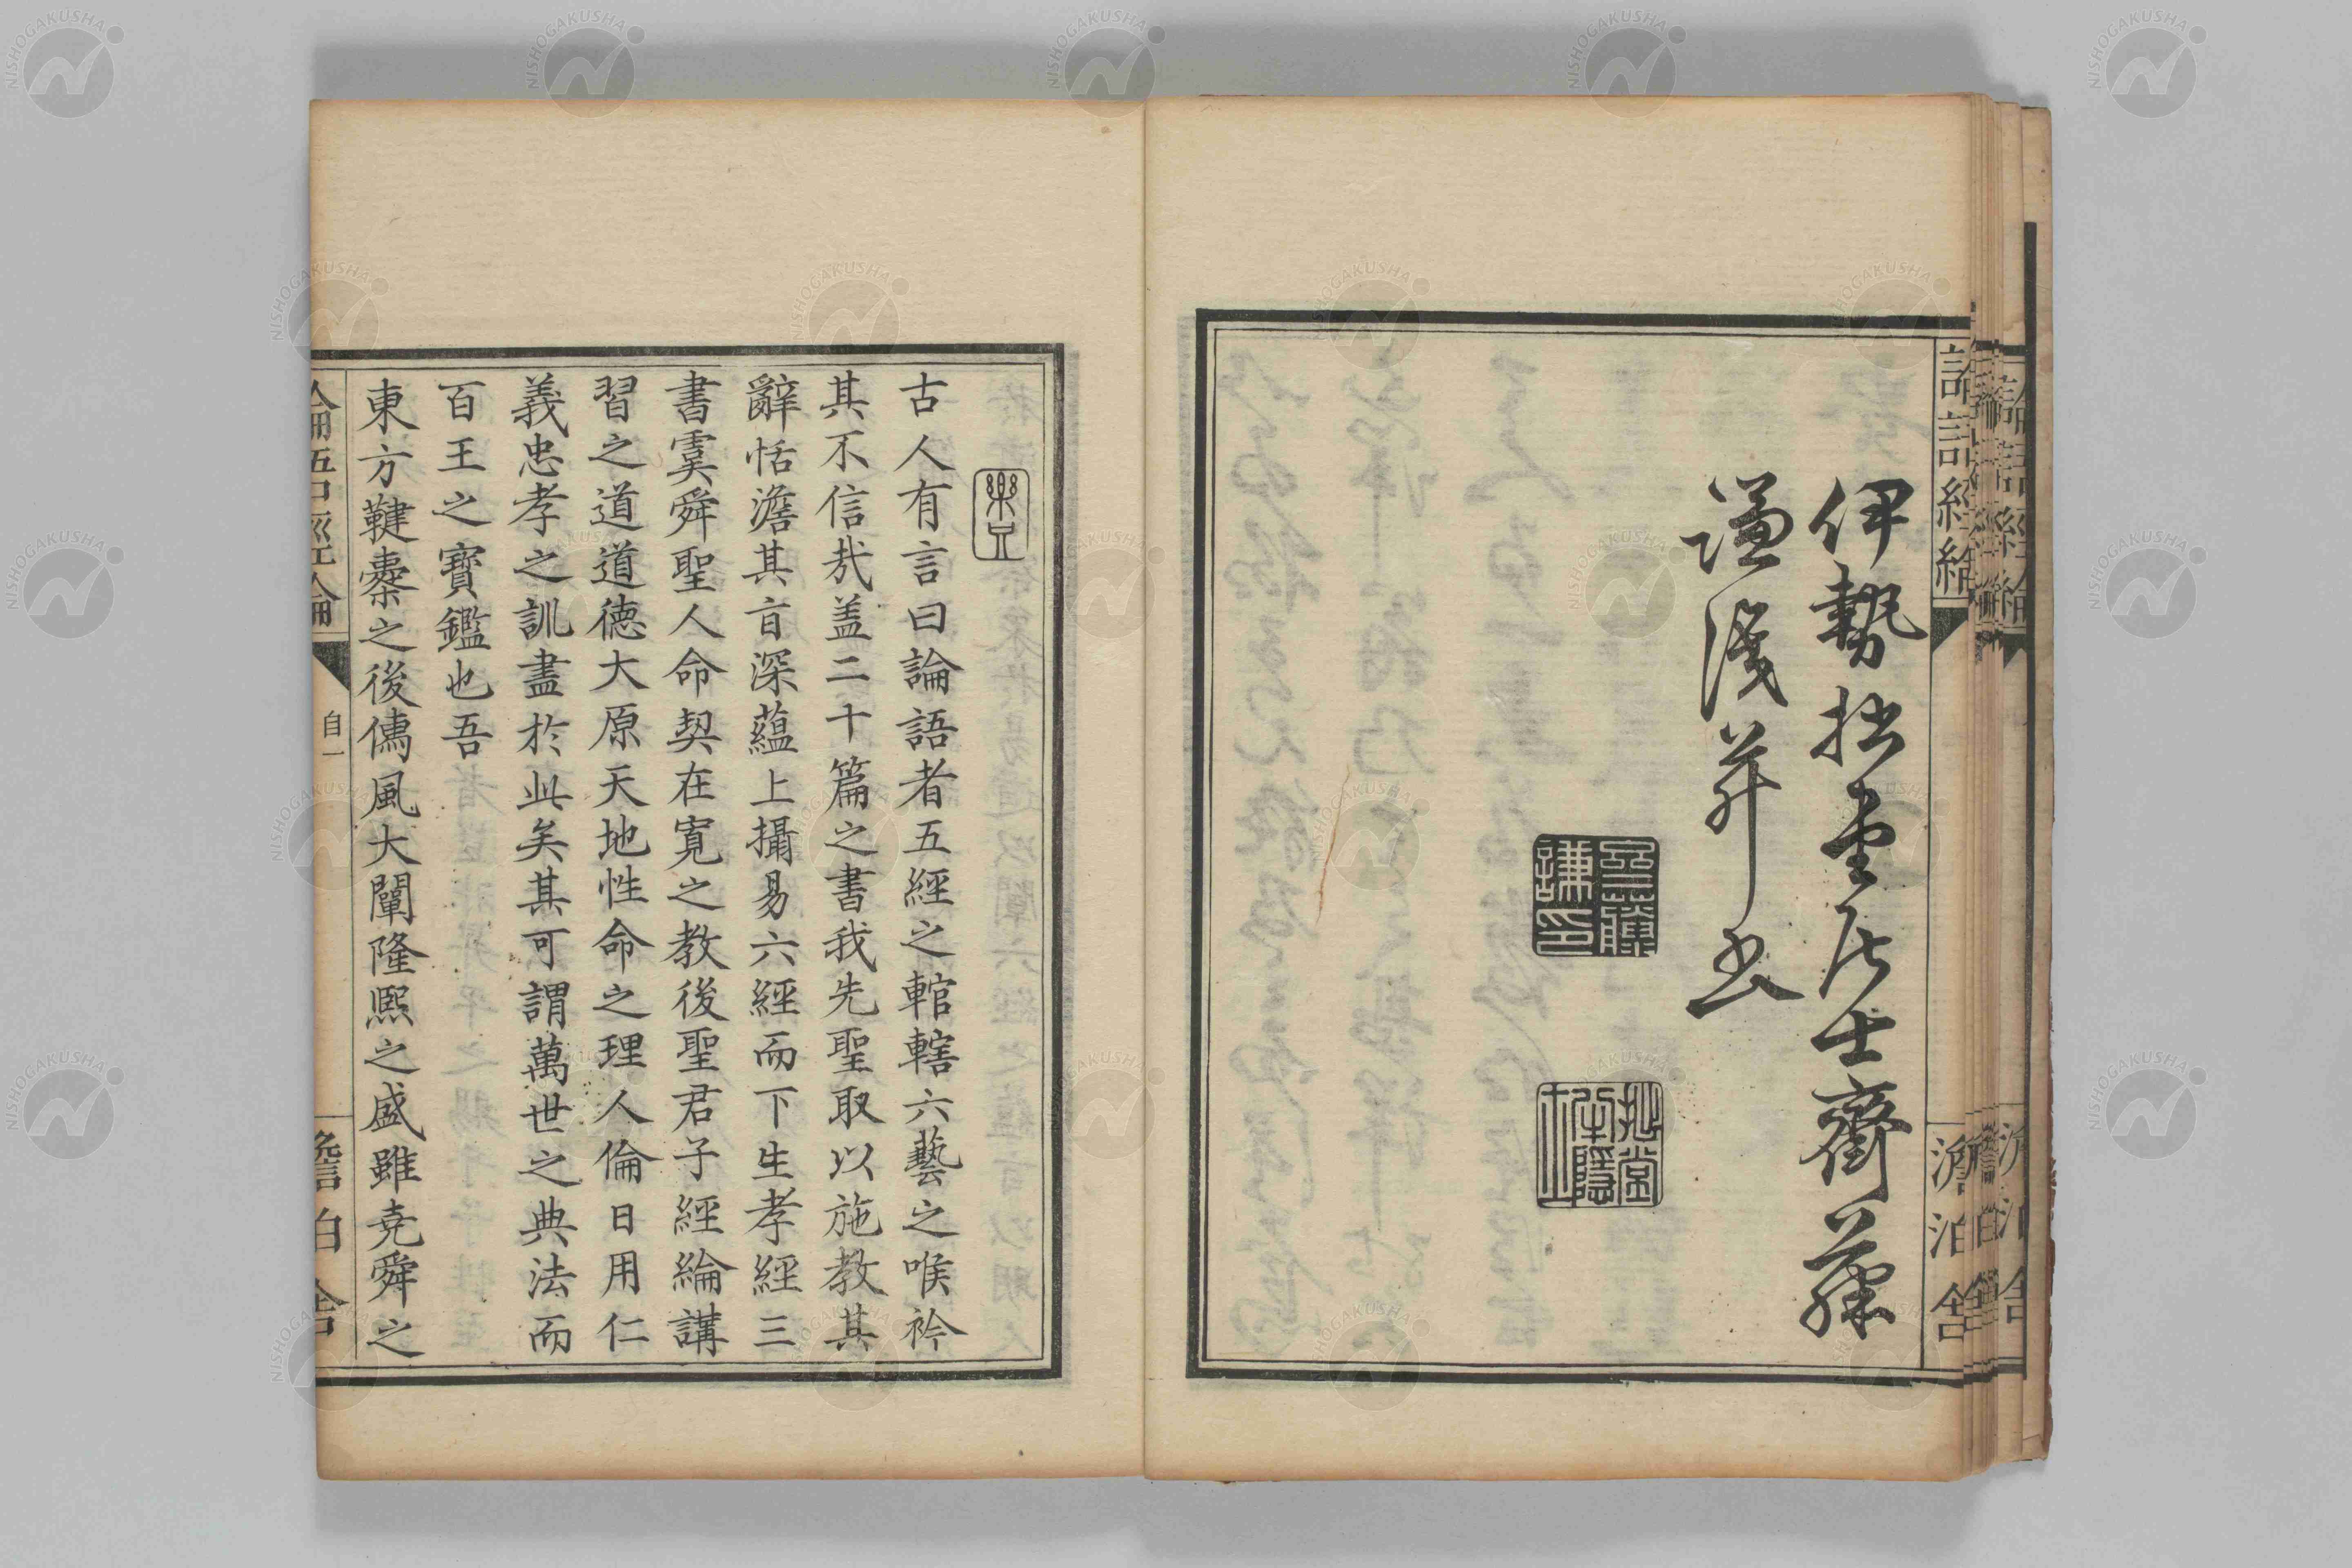 伊勢拙堂居士齋藤
謙濟并書
論語經綸
澹泊舍
古人有言曰論語者五經之輨轄六藝之喉衿
其不信哉盖二十篇之書我先聖取以施教其
辭恬澹其盲深蘊上攝易六經而下生孝經三
書虞舜聖人命契在寬之教後聖君子經綸講
習之道道德大原天地性命之理人倫日用仁
義忠孝之訓盡於此矣其可謂萬世之典法而
百王之寶鑑也吾
東方鞬櫜之後儒風大闡隆熙之盛雖堯舜之
論語經綸
自一
澹泊舍
NISHOGAKUSHA